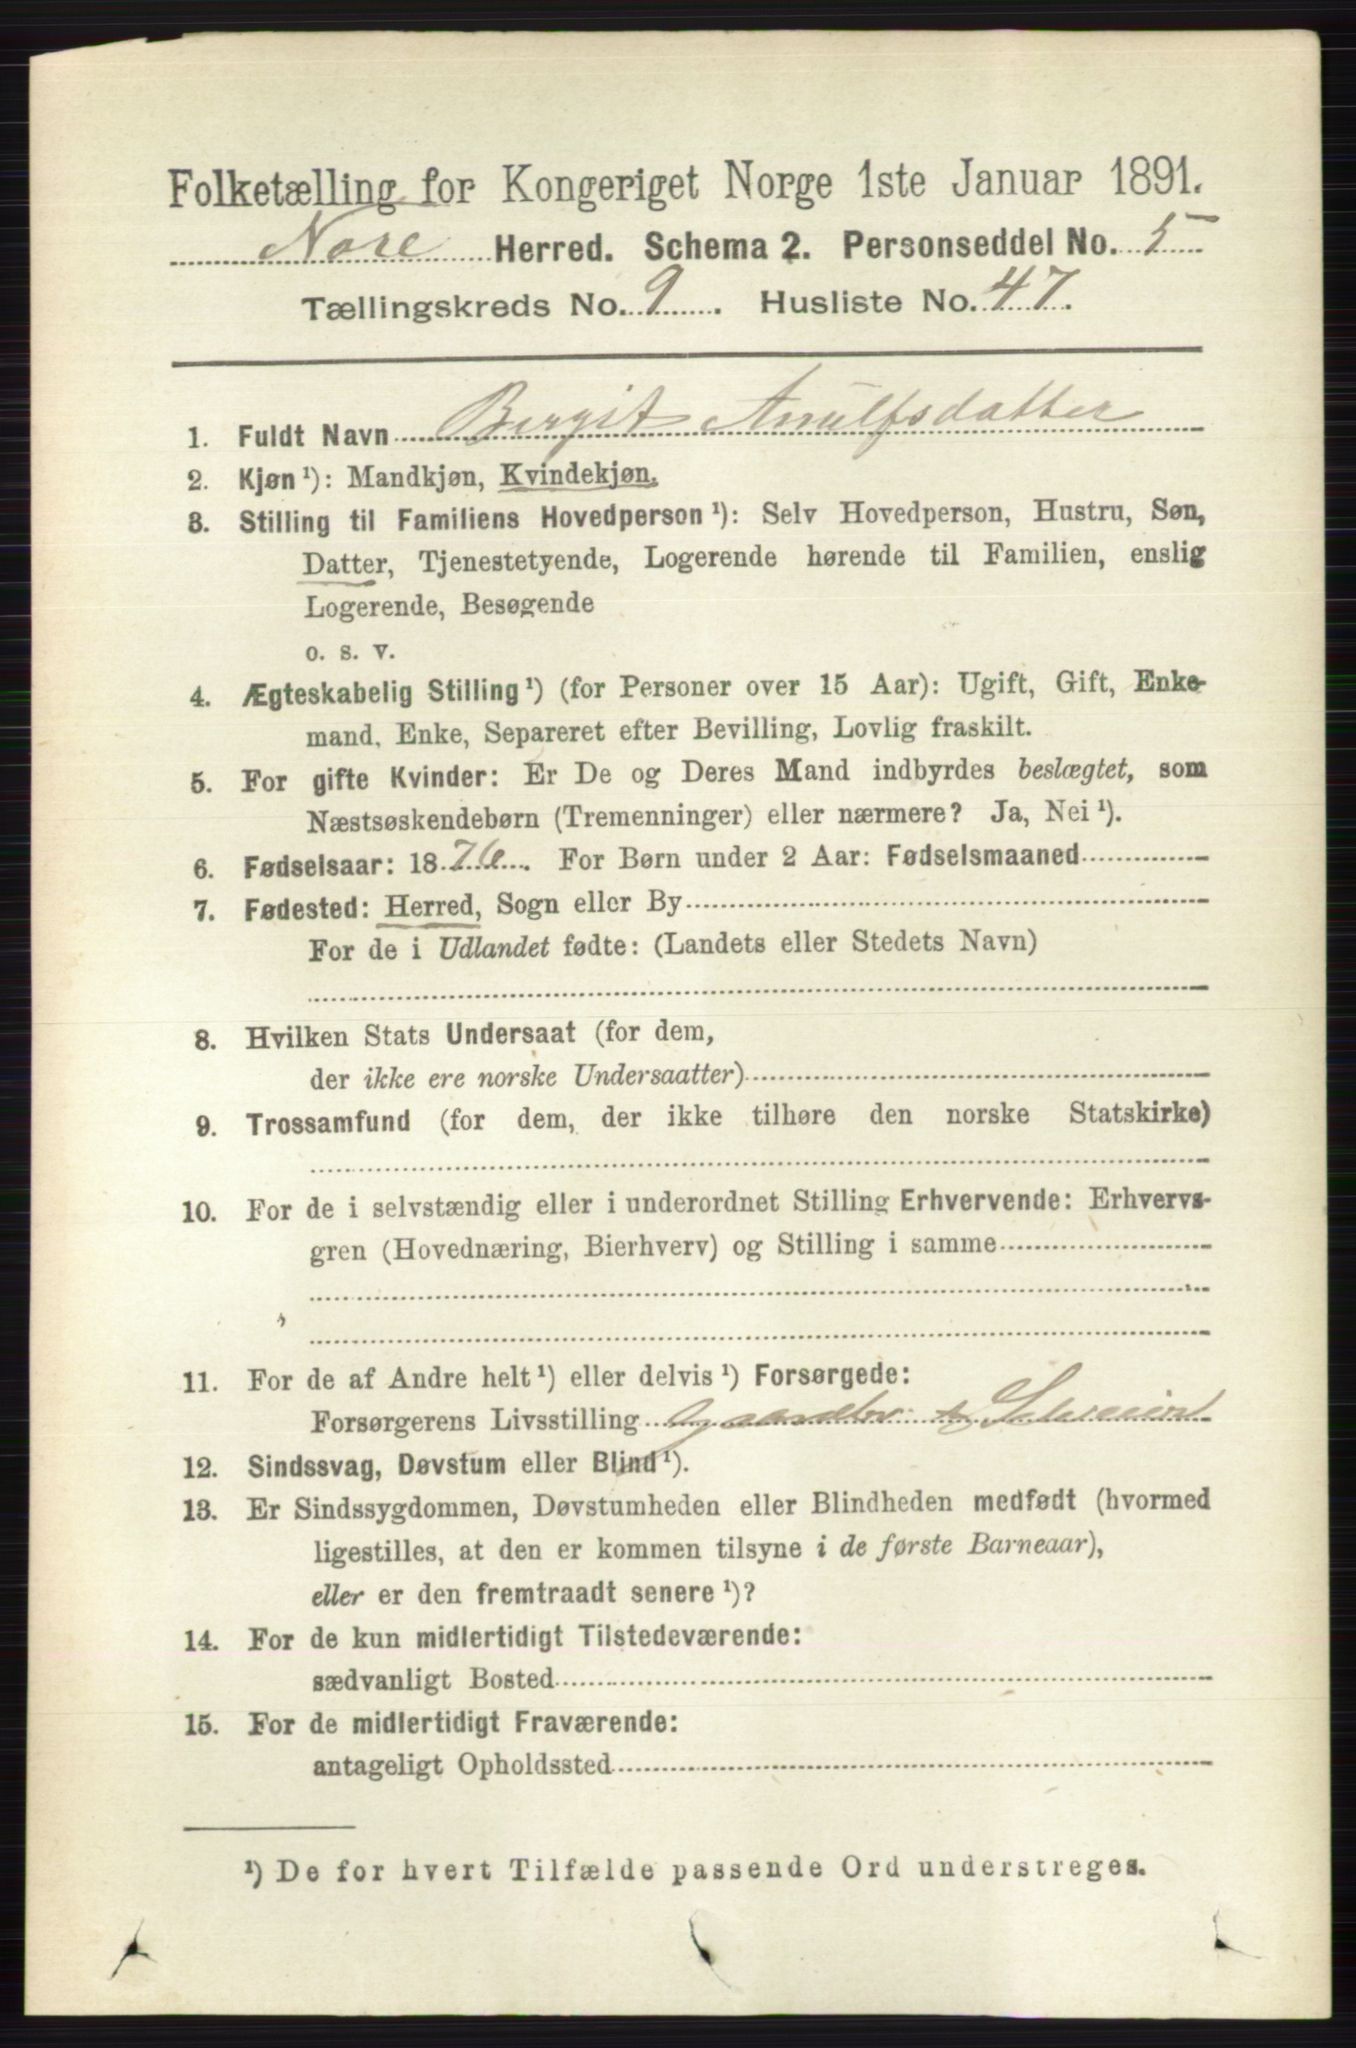 Folketælling for Kongeriget Norge 1ste Januar 1891.
Nore Herred. Schema 2. Personseddel No. 5
Tællingskreds No. 9. Husliste No. 47.
1. Fuldt Navn Bergit Arnulfsdatter
2. Kjøn¹): Mandkjøn, Kvindekjøn.
3. Stilling til Familiens Hovedperson¹): Selv Hovedperson, Hustru, Søn,
Datter, Tjenestetyende, Logerende hørende til Familien, enslig
Logerende, Besøgende
o. s. v.
4. Ægteskabelig Stilling¹) (for Personer over 15 Aar): Ugift, Gift, Enke-
mand, Enke, Separeret efter Bevilling, Lovlig fraskilt.
5. For gifte Kvinder: Er De og Deres Mand indbyrdes beslægtet, som
Næstsøskendebørn (Tremenninger) eller nærmere? Ja, Nei¹).
6. Fødselsaar: 1876. For Børn under 2 Aar: Fødselsmaaned
7. Fødested: Herred, Sogn eller By
For de i Udlandet fødte: (Landets eller Stedets Navn)
8. Hvilken Stats Undersaat (for dem,
der ikke ere norske Undersaatter)
9. Trossamfund (for dem, der ikke tilhøre den norske Statskirke)
10. For de i selvstændig eller i underordnet Stilling Erhvervende: Erhvervs-
gren (Hovednæring, Bierhverv) og Stilling i samme
11. For de af Andre helt¹) eller delvis¹) Forsørgede:
Forsørgerens Livsstilling
12. Sindssvag, Døvstum eller Blind¹).
13. Er Sindssygdommen, Døvstumheden eller Blindheden medfødt (hvormed
ligestilles, at den er kommen tilsyne i de første Barneaar),
eller er den fremtraadt senere¹)?
14. For de kun midlertidigt Tilstedeværende:
sædvanligt Bosted
15. For de midlertidigt Fraværende:
antageligt Opholdssted
¹) De for hvert Tilfælde passende Ord understreges.